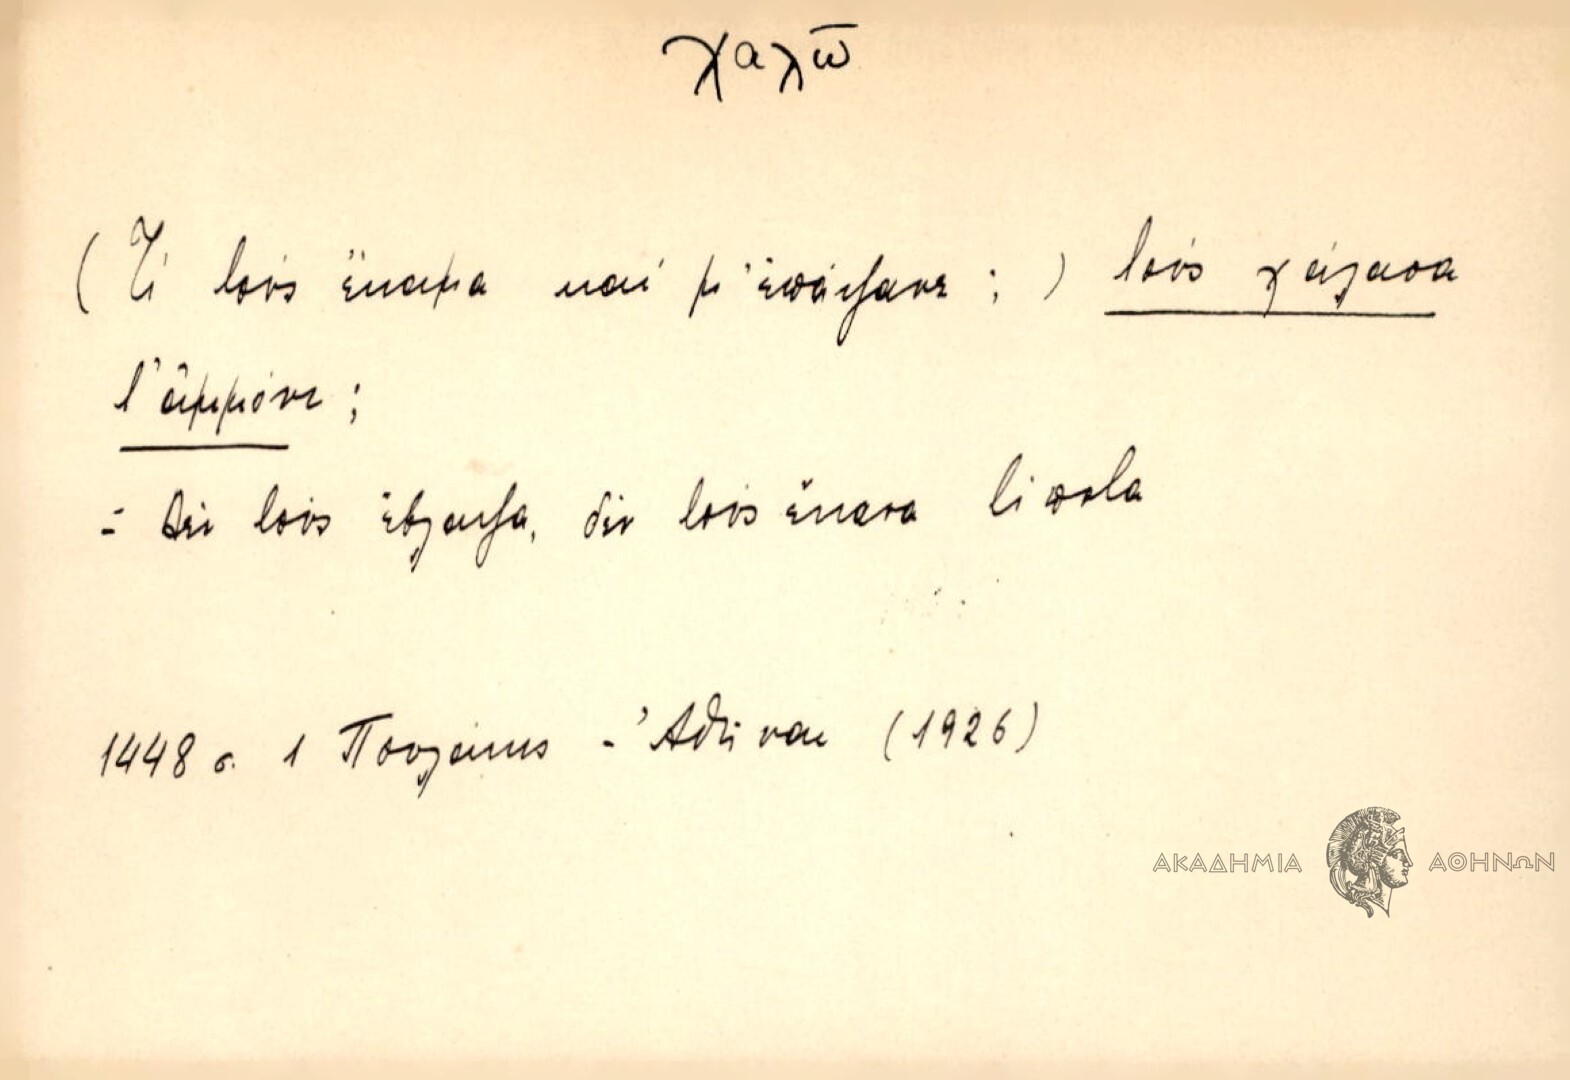 χαλῶ
(Τί τοὺς ἔκαμα καὶ μ' ἐπάψανε ; ) τοὺς χάλασα
τ' ἀμμόνι ;
= Δὲν τοὺς ἔβλαψα, δὲν τοὺς ἔκανα τίποτα
1448 σ. 1 Πουλάκης - Ἀθῆναι (1926)
ΑΚΑΔΗΜΙΑ ΑΘΗΝΩΝ